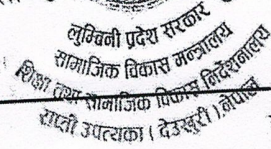 लुम्बिनी प्रदेश सरकार
सामाजिक विकास मन्त्रालय
शिक्षा तथा सामाजिक विकास निर्देशनालय
राप्ती उपत्यका (देउखुरी), नेपाल